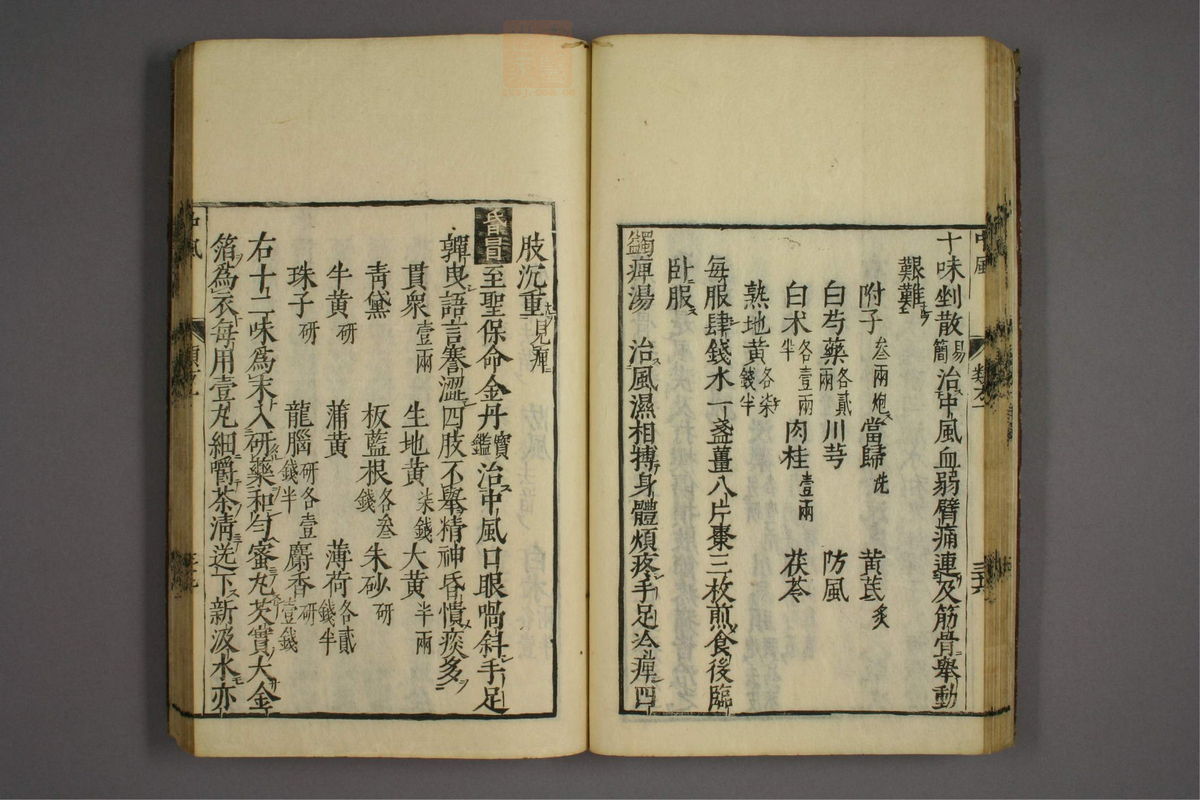 十味剉散易簡治中風血弱臂痛連及筋骨舉動
艱難
附子叁兩炮當歸洗黃芪炙
白芍藥各貳兩川芎防風
白朮各壹兩半肉桂壹兩茯苓
熟地黃各柒錢半
每服肆錢水一盞薑八片棗三枚煎食後臨
臥服
蠲痺湯治風濕相搏身體煩疼手足冷痺四
中風
肢沉重見痺
昏冒至聖保命金丹寶鑑治中風口眼喎斜手足
嚲曳語言蹇澀四肢不舉精神昏憒痰多
貫衆壹兩生地黃柒錢大黃半兩
青黛板藍根各叁錢朱砂研
牛黃研蒲黃薄荷各貳錢半
珠子研龍腦研各壹錢半麝香研壹錢
右十二味爲末入研藥和勻蜜丸芡實大金
箔爲衣每用壹丸細嚼茶清送下新汲水亦